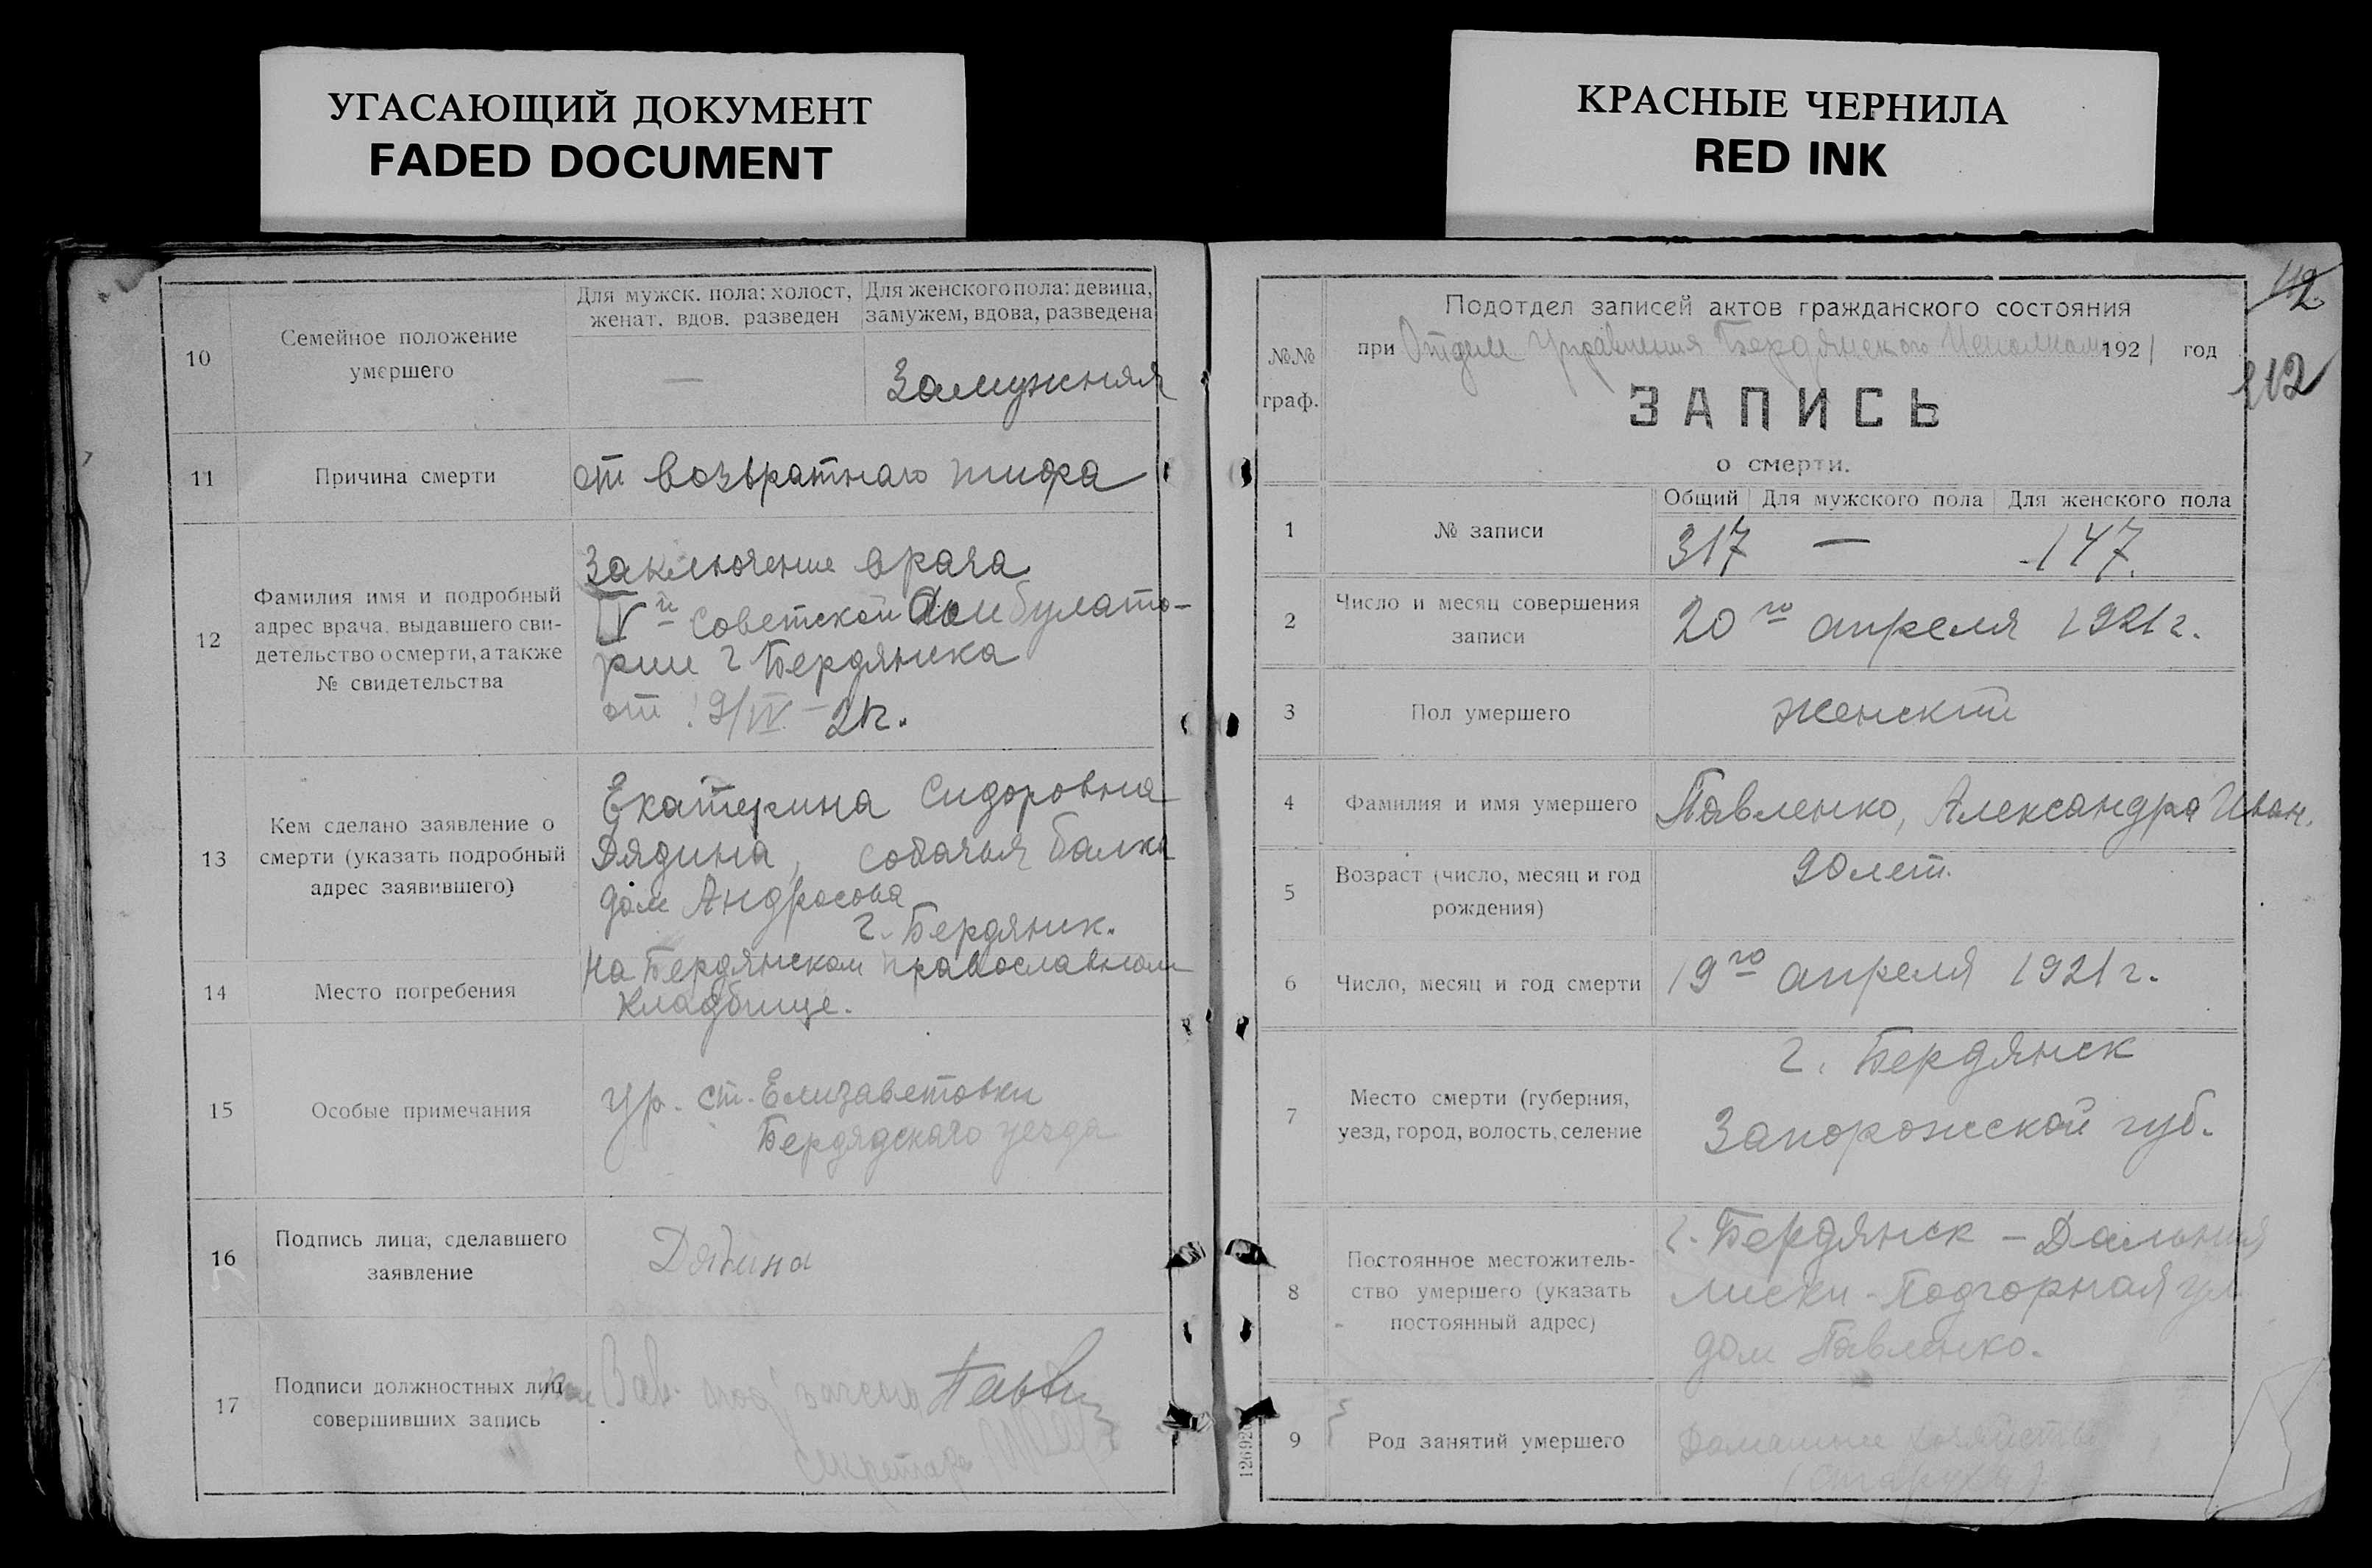 УГАСАЮЩИЙ ДОКУМЕНТ
FADED DOCUMENT
КРАСНЫЕ ЧЕРНИЛА
RED INK
10
Семейное положение
умершего
Для мужск. пола: холост,
женат, вдов, разведен
Для женского пола: девица,
замужем, вдова, разведена
—
Замужняя
11
Причина смерти
от возвратнаго тифа
12
Фамилия имя и подробный
адрес врача, выдавшего сви-
детельство о смерти, а также
№ свидетельства
Заключение врача
IV й Советской Амбулато-
рии г Бердянска
от 19/IV – 21г.
13
Кем сделано заявление о
смерти (указать подробный
адрес заявившего)
Екатерина Сидоровна
Дядина, Собачья балка
дом Андросова
г. Бердянск.
14
Место погребения
На Бердянском православном
кладбище.
15
Особые примечания
ур. ст. Елизаветовки
Бердядскаго уезда
16
Подпись лица, сделавшего
заявление
Дядина
17
Подписи должностных лиц
совершивших запись
Зав.
Секретарь
112
112
№№
граф.
Подотдел записей актов гражданского состояния
при Отделе Управления Бердянского Исполкома 1921 год
ЗАПИСЬ
о смерти.
1
№ записи
Общий
Для мужского пола
Для женского пола
317 — 147.
2
Число и месяц совершения
записи
20 го апреля 1921 г.
3
Пол умершего
женский
4
Фамилия и имя умершего
Павленко, Александра Иван.
5
Возраст (число, месяц и год
рождения)
90 лет.
6
Число, месяц и год смерти
19 го апреля 1921 г.
7
Место смерти (губерния,
уезд, город, волость, селение
г. Бердянск
Запорожской губ.
8
Постоянное местожитель-
ство умершего (указать
постоянный адрес)
г. Бердянск – Дальния
лиски - Подгорная ул
дом Павленко.
9
Род занятий умершего
Домашнее хозяйство
(старуха)